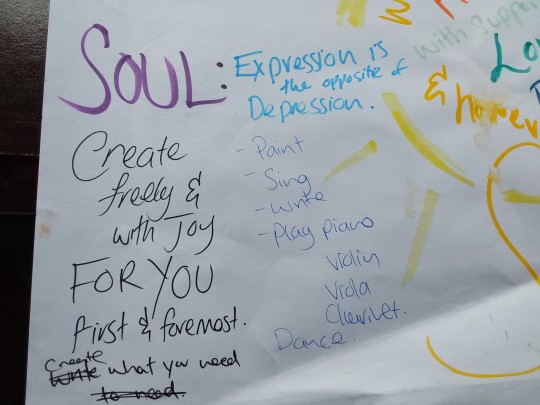 SOUL: Expression is
the opposite of
Depression.
with support
Lo
&
Create
freely &
with Joy
FOR YOU
first & foremost.
Create
write what you need
to need.
- Paint
- Sing
- write
- Play piano
Violin
Viola
Clarinet.
Dance.